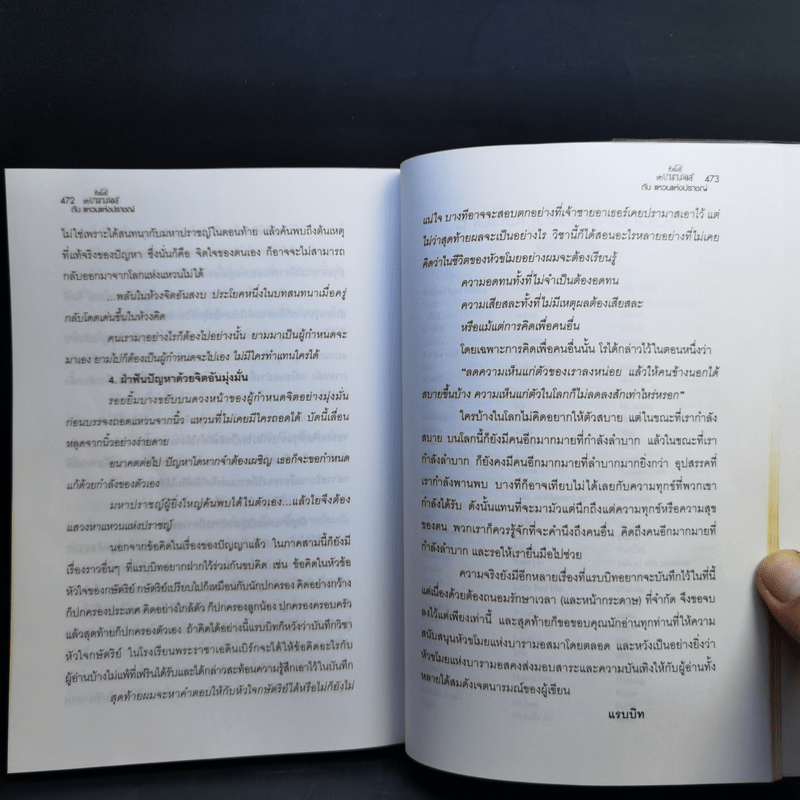 472
หัวขโมย
แห่งบารามอส
กับ แหวนแห่งปราชญ์
ไม่ใช่เพราะได้สนทนากับมหาปราชญ์ในตอนท้าย แล้วค้นพบถึงต้นเหตุ
ที่แท้จริงของปัญหา ซึ่งนั่นก็คือ จิตใจของตนเอง ก็อาจจะไม่สามารถ
กลับออกมาจากโลกแห่งแหวนได้
...พลันในห้วงจิตอันสงบ ประโยคหนึ่งในบทสนทนาเมื่อครู่
กลับโดดเด่นขึ้นในห้วงคิด
คนเรามาอย่างไรก็ต้องไปอย่างนั้น ยามมาเป็นผู้กำหนดจะ
มาเอง ยามไปก็ต้องเป็นผู้กำหนดจะไปเอง ไม่มีใครทำแทนใครได้
4. ฝ่าฟันปัญหาด้วยจิตอันมุ่งมั่น
รอยยิ้มบางขยับบนดวงหน้าของผู้กำหนดจิตอย่างมุ่งมั่น
ก่อนบรรจงถอดแหวนจากนิ้ว แหวนที่ไม่เคยมีใครถอดได้ บัดนี้เลื่อน
หลุดจากนิ้วอย่างง่ายดาย
อนาคตต่อไป ปัญหาใดหากจำต้องเผชิญ เธอก็จะขอกำหนด
แก้ด้วยกำลังของตัวเอง
มหาปราชญ์ผู้ยิ่งใหญ่ค้นพบได้ในตัวเอง...แล้วใยจึงต้อง
แสวงหาแหวนแห่งปราชญ์
นอกจากข้อคิดในเรื่องของปัญญาแล้ว ในภาคสามนี้ก็ยังมี
เรื่องราวอื่นๆ ที่แรบบิทอยากฝากไว้ร่วมกันขบคิด เช่น ข้อคิดในหัวข้อ
หัวใจของกษัตริย์ กษัตริย์เปรียบไปก็เหมือนกับนักปกครอง คิดอย่างกว้าง
ก็ปกครองประเทศ คิดอย่างใกล้ตัว ก็ปกครองลูกน้อง ปกครองครอบครัว
แล้วสุดท้ายก็ปกครองตัวเอง ถ้าคิดได้อย่างนี้แรบบิทก็หวังว่าบันทึกวิชา
หัวใจกษัตริย์ ในโรงเรียนพระราชาเอดินเบิร์กจะได้ให้ข้อคิดอะไรกับ
ผู้อ่านบ้างไม่แพ้ที่เฟรินได้รับและได้กล่าวสะท้อนความรู้สึกเอาไว้ในบันทึก
สุดท้ายผมจะหาคำตอบให้กับหัวใจกษัตริย์ได้หรือไม่ก็ยังไม่
หัวขโมย
แห่งบารามอส
กับ แหวนแห่งปราชญ์
473
แน่ใจ บางทีอาจจะสอบตกอย่างที่เจ้าชายอาเธอร์เคยปรามาสเอาไว้ แต่
ไม่ว่าสุดท้ายผลจะเป็นอย่างไร วิชานี้ก็ได้สอนอะไรหลายอย่างที่ไม่เคย
คิดว่าในชีวิตของหัวขโมยอย่างผมจะต้องเรียนรู้
ความอดทนทั้งที่ไม่จำเป็นต้องอดทน
ความเสียสละทั้งที่ไม่มีเหตุผลต้องเสียสละ
หรือแม้แต่การคิดเพื่อคนอื่น
โดยเฉพาะการคิดเพื่อคนอื่นนั้น โรได้กล่าวไว้ในตอนหนึ่งว่า
“ลดความเห็นแก่ตัวของเราลงหน่อย แล้วให้คนข้างนอกได้
สบายขึ้นบ้าง ความเห็นแก่ตัวในโลกก็ไม่ลดลงสักเท่าไหร่หรอก”
ใครบ้างในโลกไม่คิดอยากให้ตัวสบาย แต่ในขณะที่เรากำลัง
สบาย บนโลกนี้ก็ยังมีคนอีกมากมายที่กำลังลำบาก แล้วในขณะที่เรา
กำลังลำบาก ก็ยังคงมีคนอีกมากมายที่ลำบากมากยิ่งกว่า อุปสรรคที่
เรากำลังพานพบ บางทีก็อาจเทียบไม่ได้เลยกับความทุกข์ที่พวกเขา
กำลังได้รับ ดังนั้นแทนที่จะมามัวแต่นึกถึงแต่ความทุกข์หรือความสุข
ของตน พวกเราก็ควรรู้จักที่จะคำนึงถึงคนอื่น คิดถึงคนอีกมากมายที่
กำลังลำบาก และรอให้เรายื่นมือไปช่วย
ความจริงยังมีอีกหลายเรื่องที่แรบบิทอยากจะบันทึกไว้ในที่นี้
แต่เนื่องด้วยต้องถนอมรักษาเวลา (และหน้ากระดาษ) ที่จำกัด จึงขอจบ
ลงไว้แต่เพียงเท่านี้ และสุดท้ายก็ขอขอบคุณนักอ่านทุกท่านที่ให้ความ
สนับสนุนหัวขโมยแห่งบารามอสมาโดยตลอด และหวังเป็นอย่างยิ่งว่า
หัวขโมยแห่งบารามอสคงส่งมอบสาระและความบันเทิงให้กับผู้อ่านทั้ง
หลายได้สมดังเจตนารมณ์ของผู้เขียน
แรบบิท